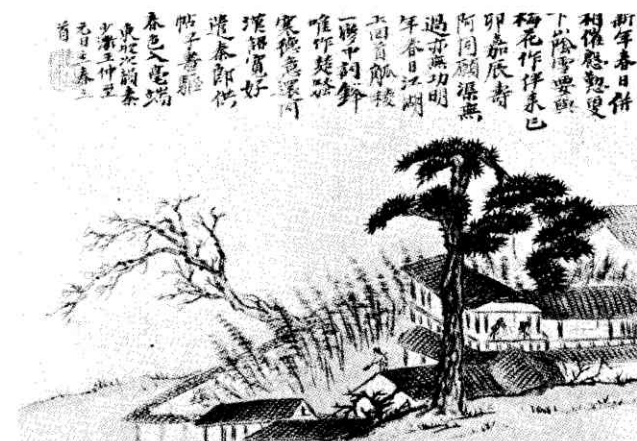 新年春日併
相催慇懃更
下山陰雪要與
梅花作伴來己
卯嘉辰壽
阿同願渠無
過亦無功明
年春日江湖
上回首觚稜
一夢中詞鋒
唯作楚騷
寒德意還同
漢詔寬好
遣秦郎供
帖子盡驅
春色入毫端
東坡次韻秦
少游王仲至
元日立春三
首